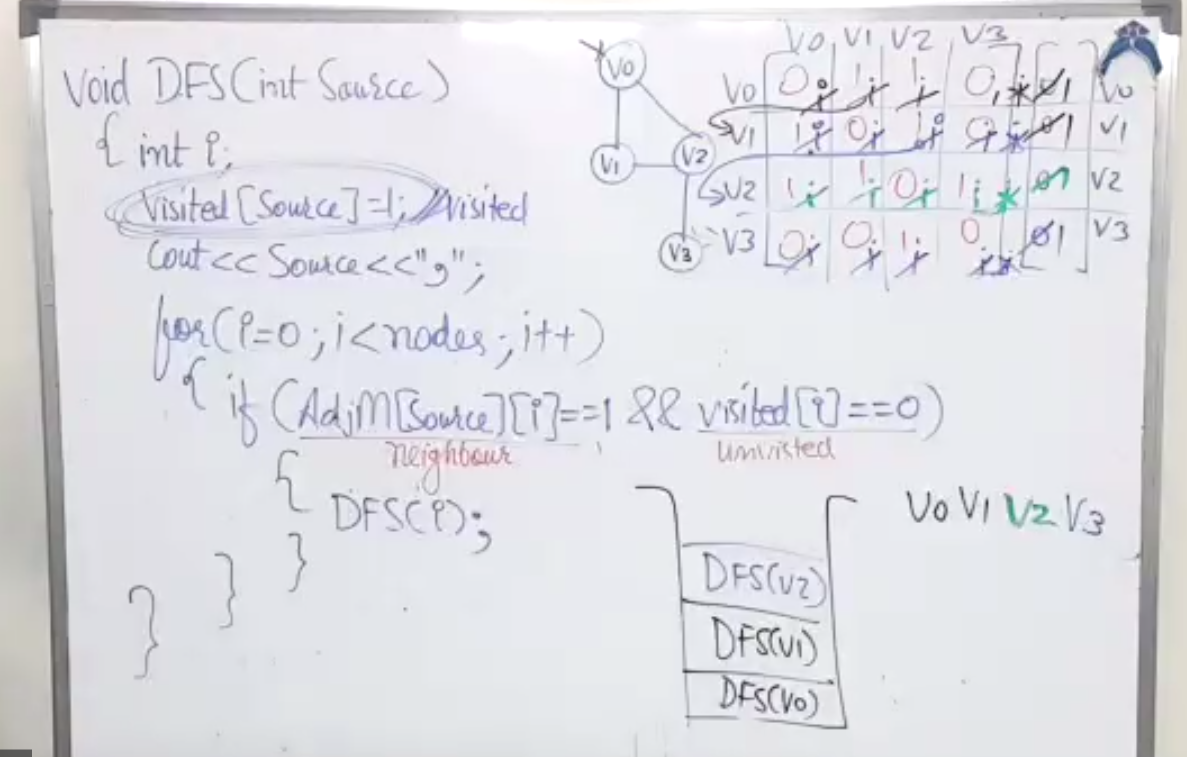 Void DFS(int Source)
{ int i;
Visited[Source]=1; //Visited
Cout<< Source<<",";
for(i=0; i<nodes; i++)
{ if (AdjM[Source][i]==1 && visited[i]==0)
neighbour
unvisted
{
DFS(i);
}
}
}
V0
V1
V2
V3
V0 V1 V2 V3
V0 0 1 1 0 1 V0
V1 1 0 1 0 1 V1
V2 1 1 0 1 V2
V3 0 0 1 0 1 V3
V0 V1 V2 V3
DFS(V2)
DFS(V1)
DFS(V0)